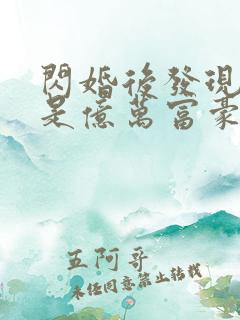 閃婚後發現
是億萬富豪
五阿哥
未經同意禁止轉載